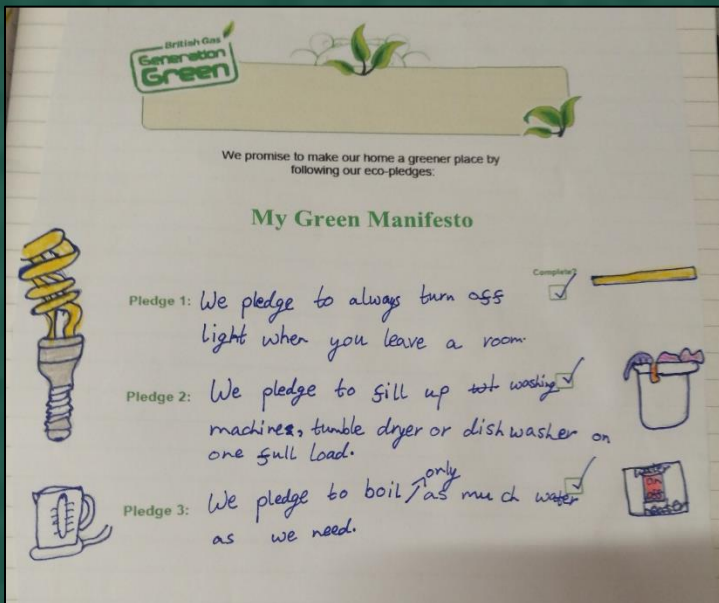 British Gas
Generation
Green
We promise to make our home a greener place by
following our eco-pledges:
My Green Manifesto
Complete?
Pledge 1: We pledge to always turn off
light when you leave a room.
Pledge 2: We pledge to fill up washing
machines, tumble dryer or dishwasher on
one full load.
Pledge 3: We pledge to boil only as much water
as we need.
water
on
off
heater